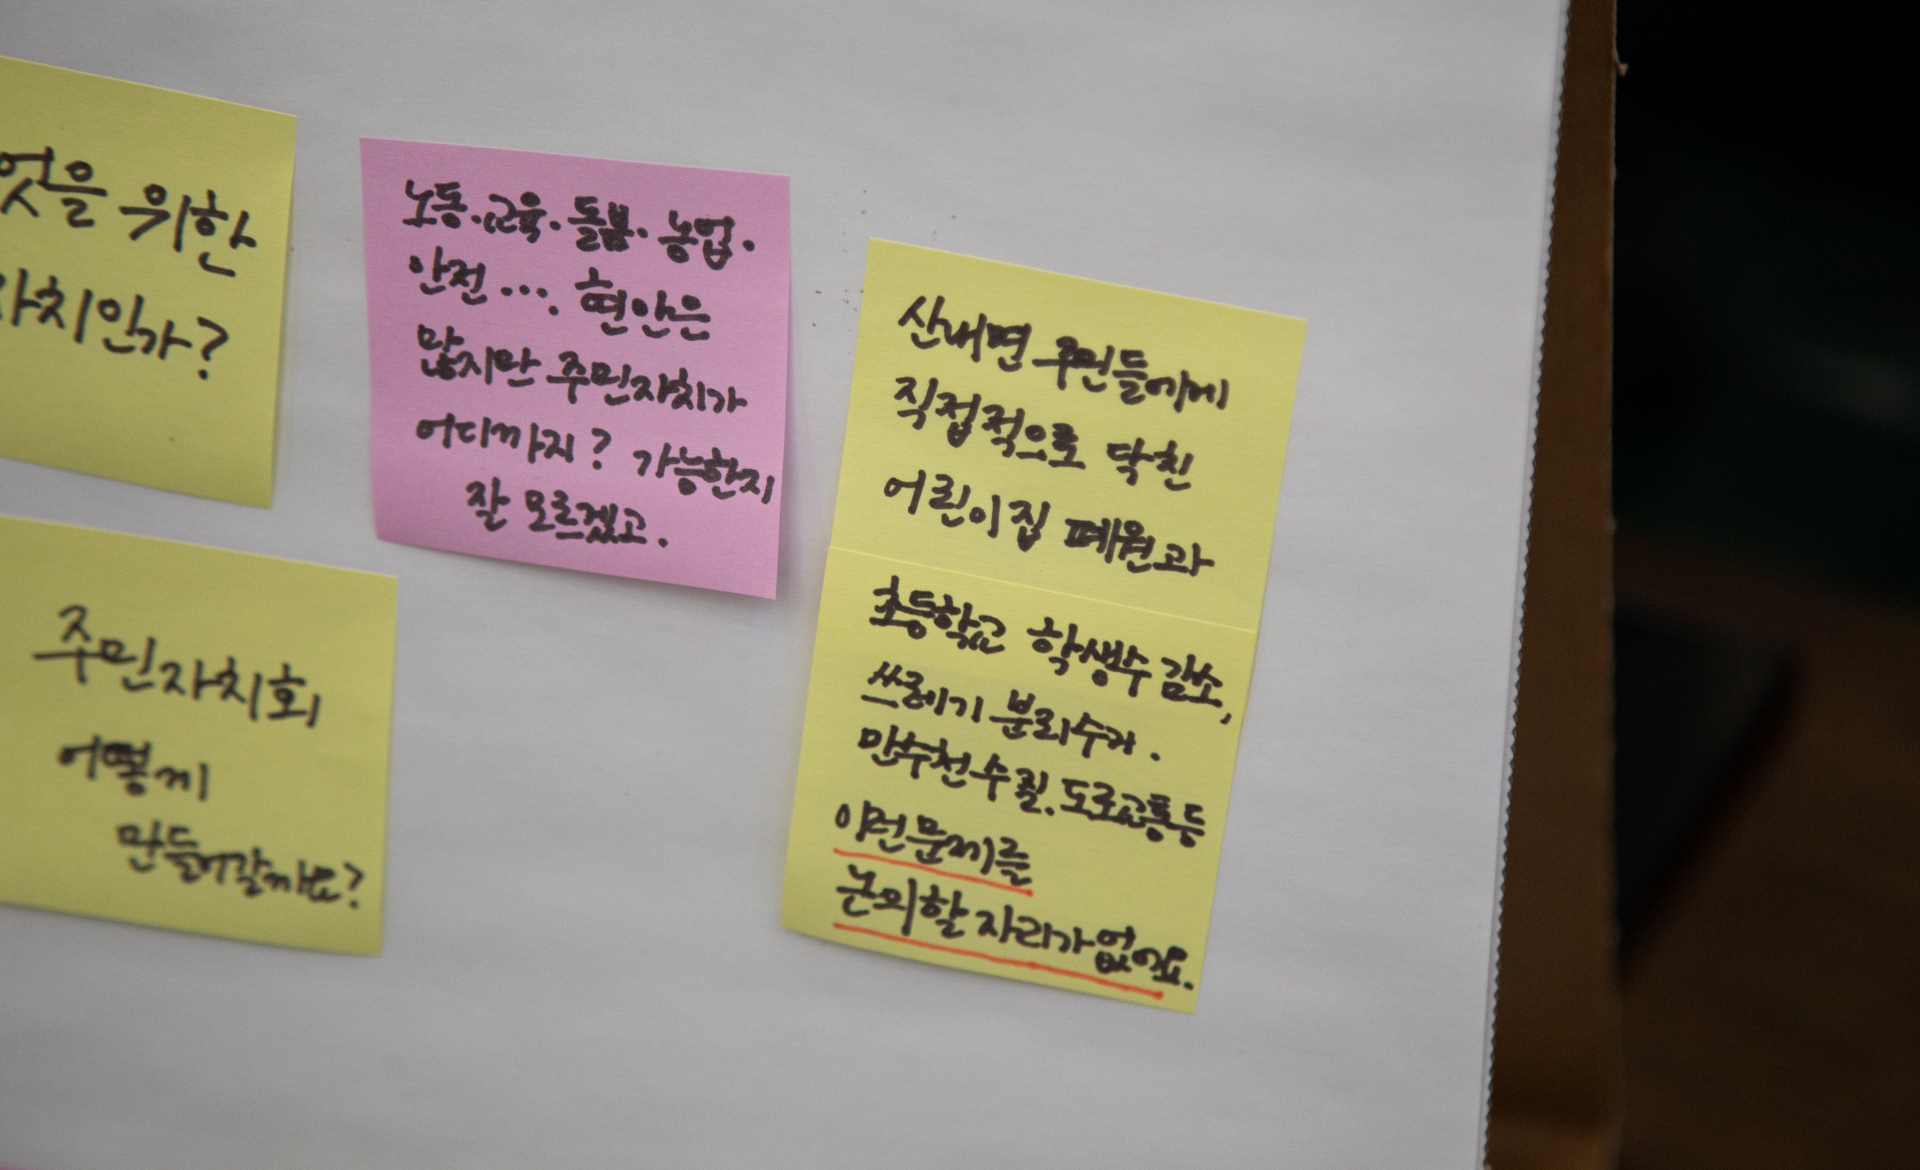 엇을 위한
자치인가?
노동·교육·돌봄·농업·
안전···. 현안은
많지만 주민자치가
어디까지? 가능한지
잘 모르겠고.
산내면 주민들에게
직접적으로 닥친
어린이집 폐원과
초등학교 학생수 감소,
쓰레기 분리수거.
만수천 수질, 도로교통 등
이런 문제를
논의할 자리가 없어요.
주민자치회
어떻게
만들어갈까요?